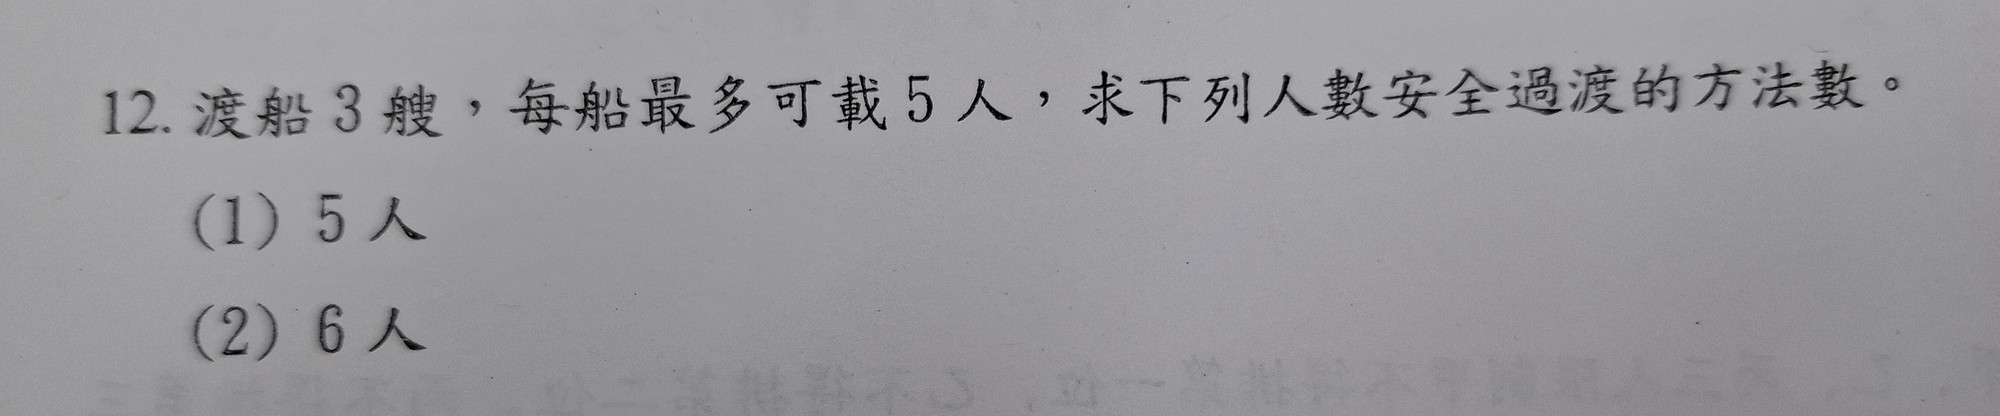 12. 渡船 3 艘，每船最多可載 5 人，求下列人數安全過渡的方法數。
(1) 5 人
(2) 6 人